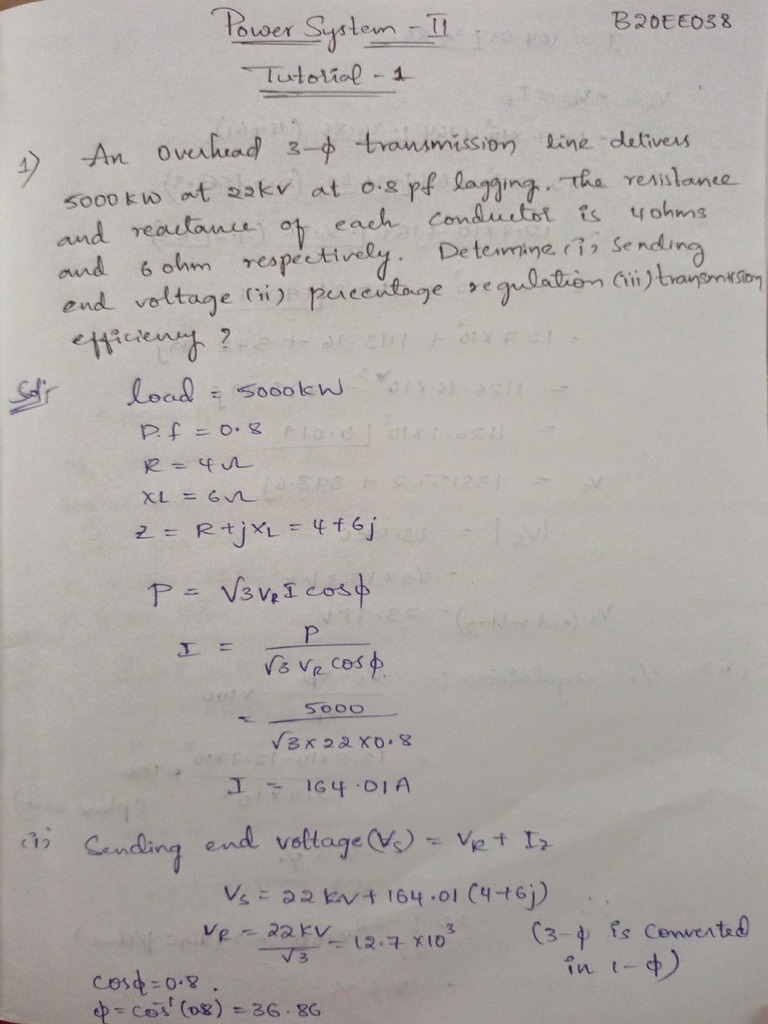 Power System - II
B20EE038
Tutorial - 1
1) An Overhead 3-ϕ transmission line delivers
5000kW at 22kV at 0.8 pf lagging. The resistance
and reactance of each conductor is 4ohms
and 6 ohm respectively. Determine (i) Sending
end voltage (ii) percentage regulation (iii) transmission
efficiency?
Sol:- load = 5000kW
P.f = 0.8
R = 4Ω
XL = 6Ω
Z = R+jXL = 4+6j
P = √3 VR I cosϕ
I = P / √3 VR cosϕ.
= 5000 / √3×22×0.8
I = 164.01A
(i) Sending end voltage (Vs) = VR + Iz
Vs = 22kV + 164.01 (4+6j)
VR = 22KV / √3 = 12.7 ×10³ (3-ϕ is converted
in 1-ϕ)
cosϕ = 0.8.
ϕ = cos⁻¹(0.8) = 36.86